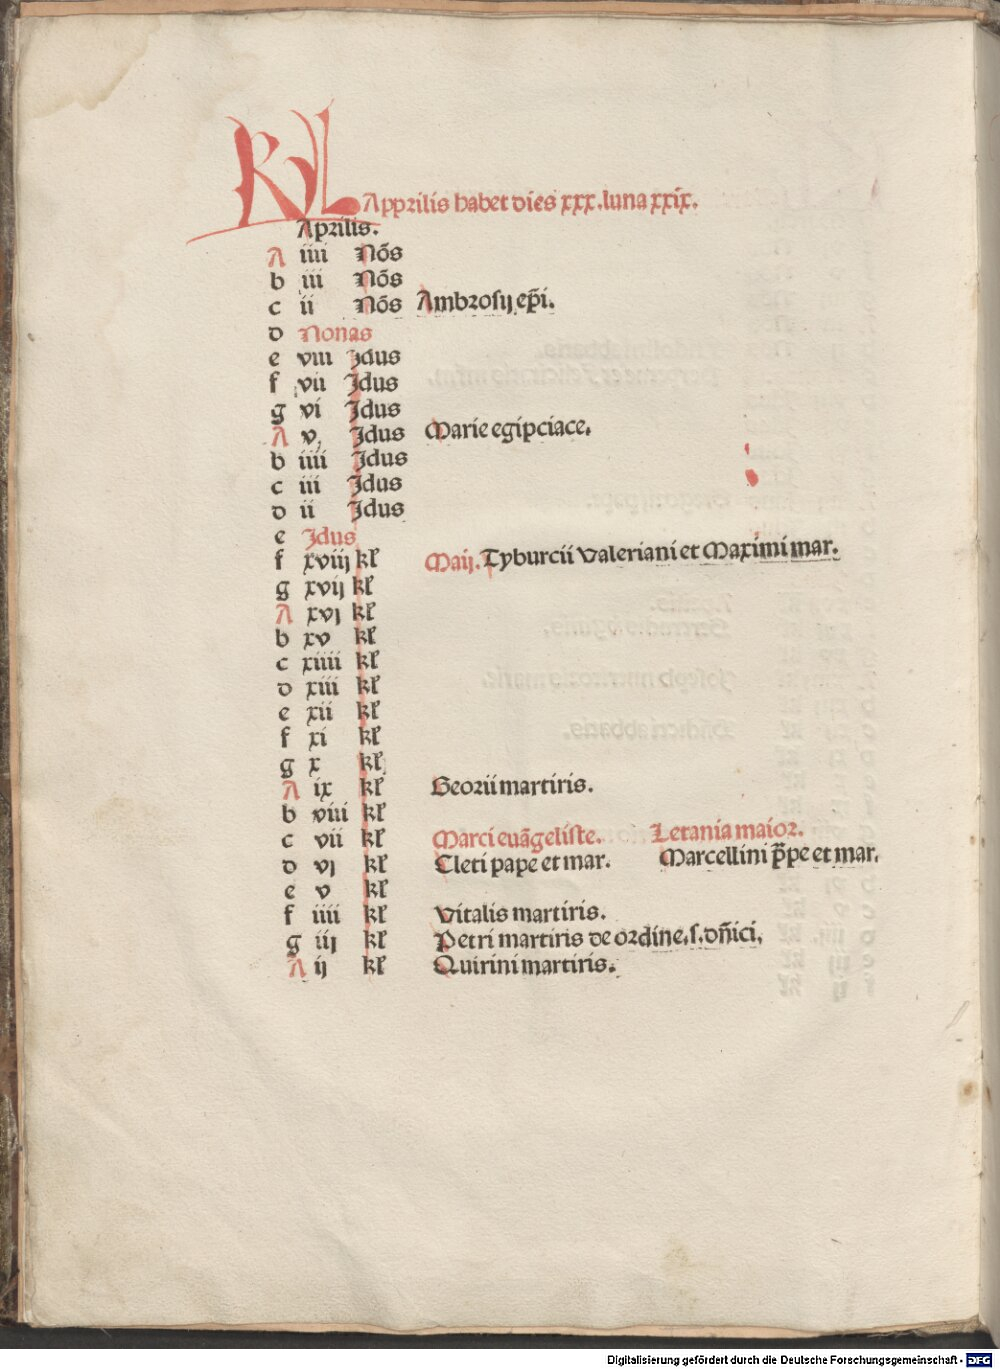 KL Apprilis habet dies xxx. luna xxix.
Aprilis.
A iiii Nōs
b iii Nōs
c ii Nōs Ambrosij ep̄i.
d Nonas
e viii Idus
f vii Idus
g vi Idus
A v. Idus Marie egipciace.
b iiii Idus
c iii Idus
d ii Idus
e Idus
f xviij kl̄ Maij. Tyburcii Valeriani et Maximi mar.
g xvij kl̄
A xvj kl̄
b xv kl̄
c xiiii kl̄
d xiii kl̄
e xii kl̄
f xi kl̄
g x kl̄
A ix kl̄ Georii martiris.
b viii kl̄
c vii kl̄ Marci euāgeliste. Letania maior.
d vj kl̄ Cleti pape et mar. Marcellini p̄pe et mar.
e v kl̄
f iiii kl̄ Vitalis martiris.
g iij kl̄ Petri martiris de ordine. s. dn̄ici.
A ij kl̄ Quirini martiris.
Digitalisierung gefördert durch die Deutsche Forschungsgemeinschaft - DFG